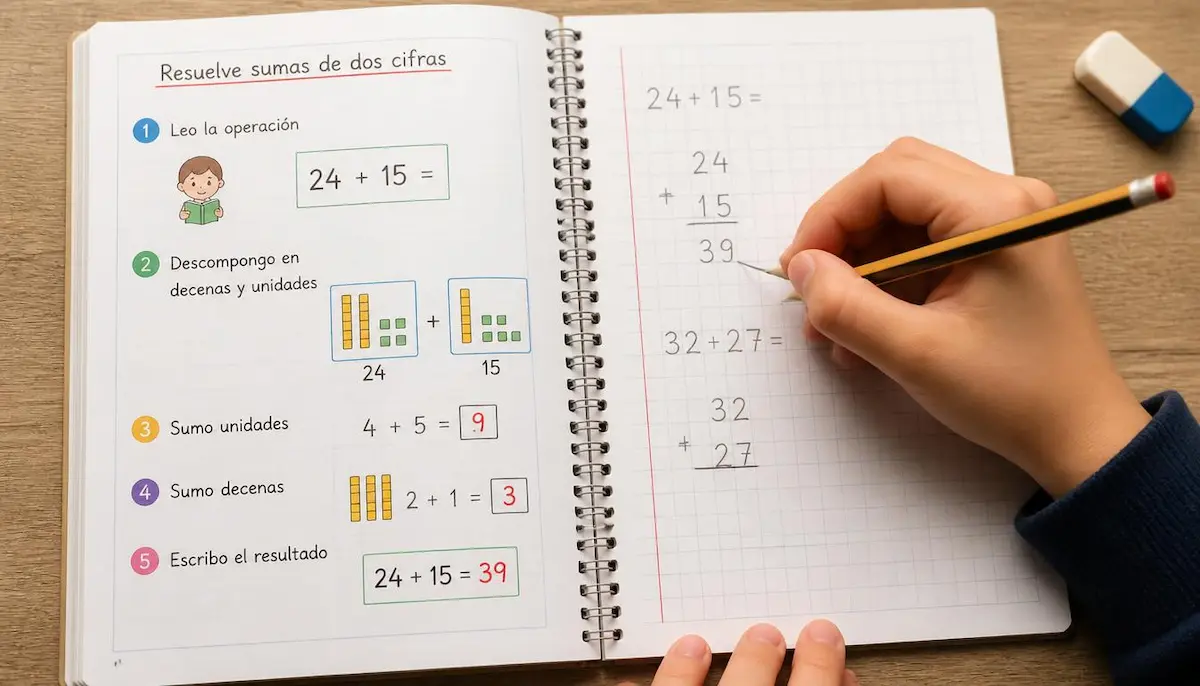 Resuelve sumas de dos cifras
1 Leo la operación
24 + 15 =
2 Descompongo en
decenas y unidades
+
24 15
3 Sumo unidades 4 + 5 = 9
4 Sumo decenas 2 + 1 = 3
5 Escribo el resultado
24 + 15 = 39
24 + 15 =
24
+ 15
39
32 + 27 =
32
+ 27